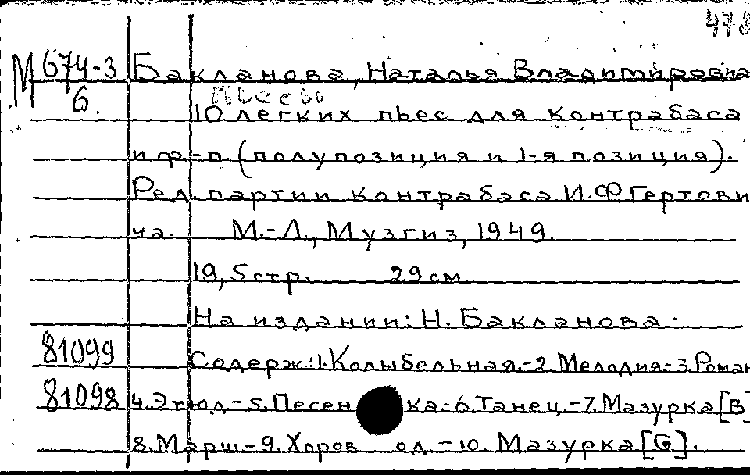 478
М 674-3 Бакланова, Наталья Владимировна
6 Пьесы
10 легких пьес для контрабаса
и ф-п (полупозиция и 1-я позиция).
Ред. партии контрабаса И.Ф Гертови
ча. М.-Л., Музгиз, 1949.
19, 5 стр. 29 см
На издании: Н. Бакланова.
81099 Содерж: 1. Колыбельная.-2. Мелодия-3. Роман
81098 4. Этюд-5. Песенка-6. Танец-7. Мазурка [B]
8. Марш-9. Хоровод.-10. Мазурка [G].